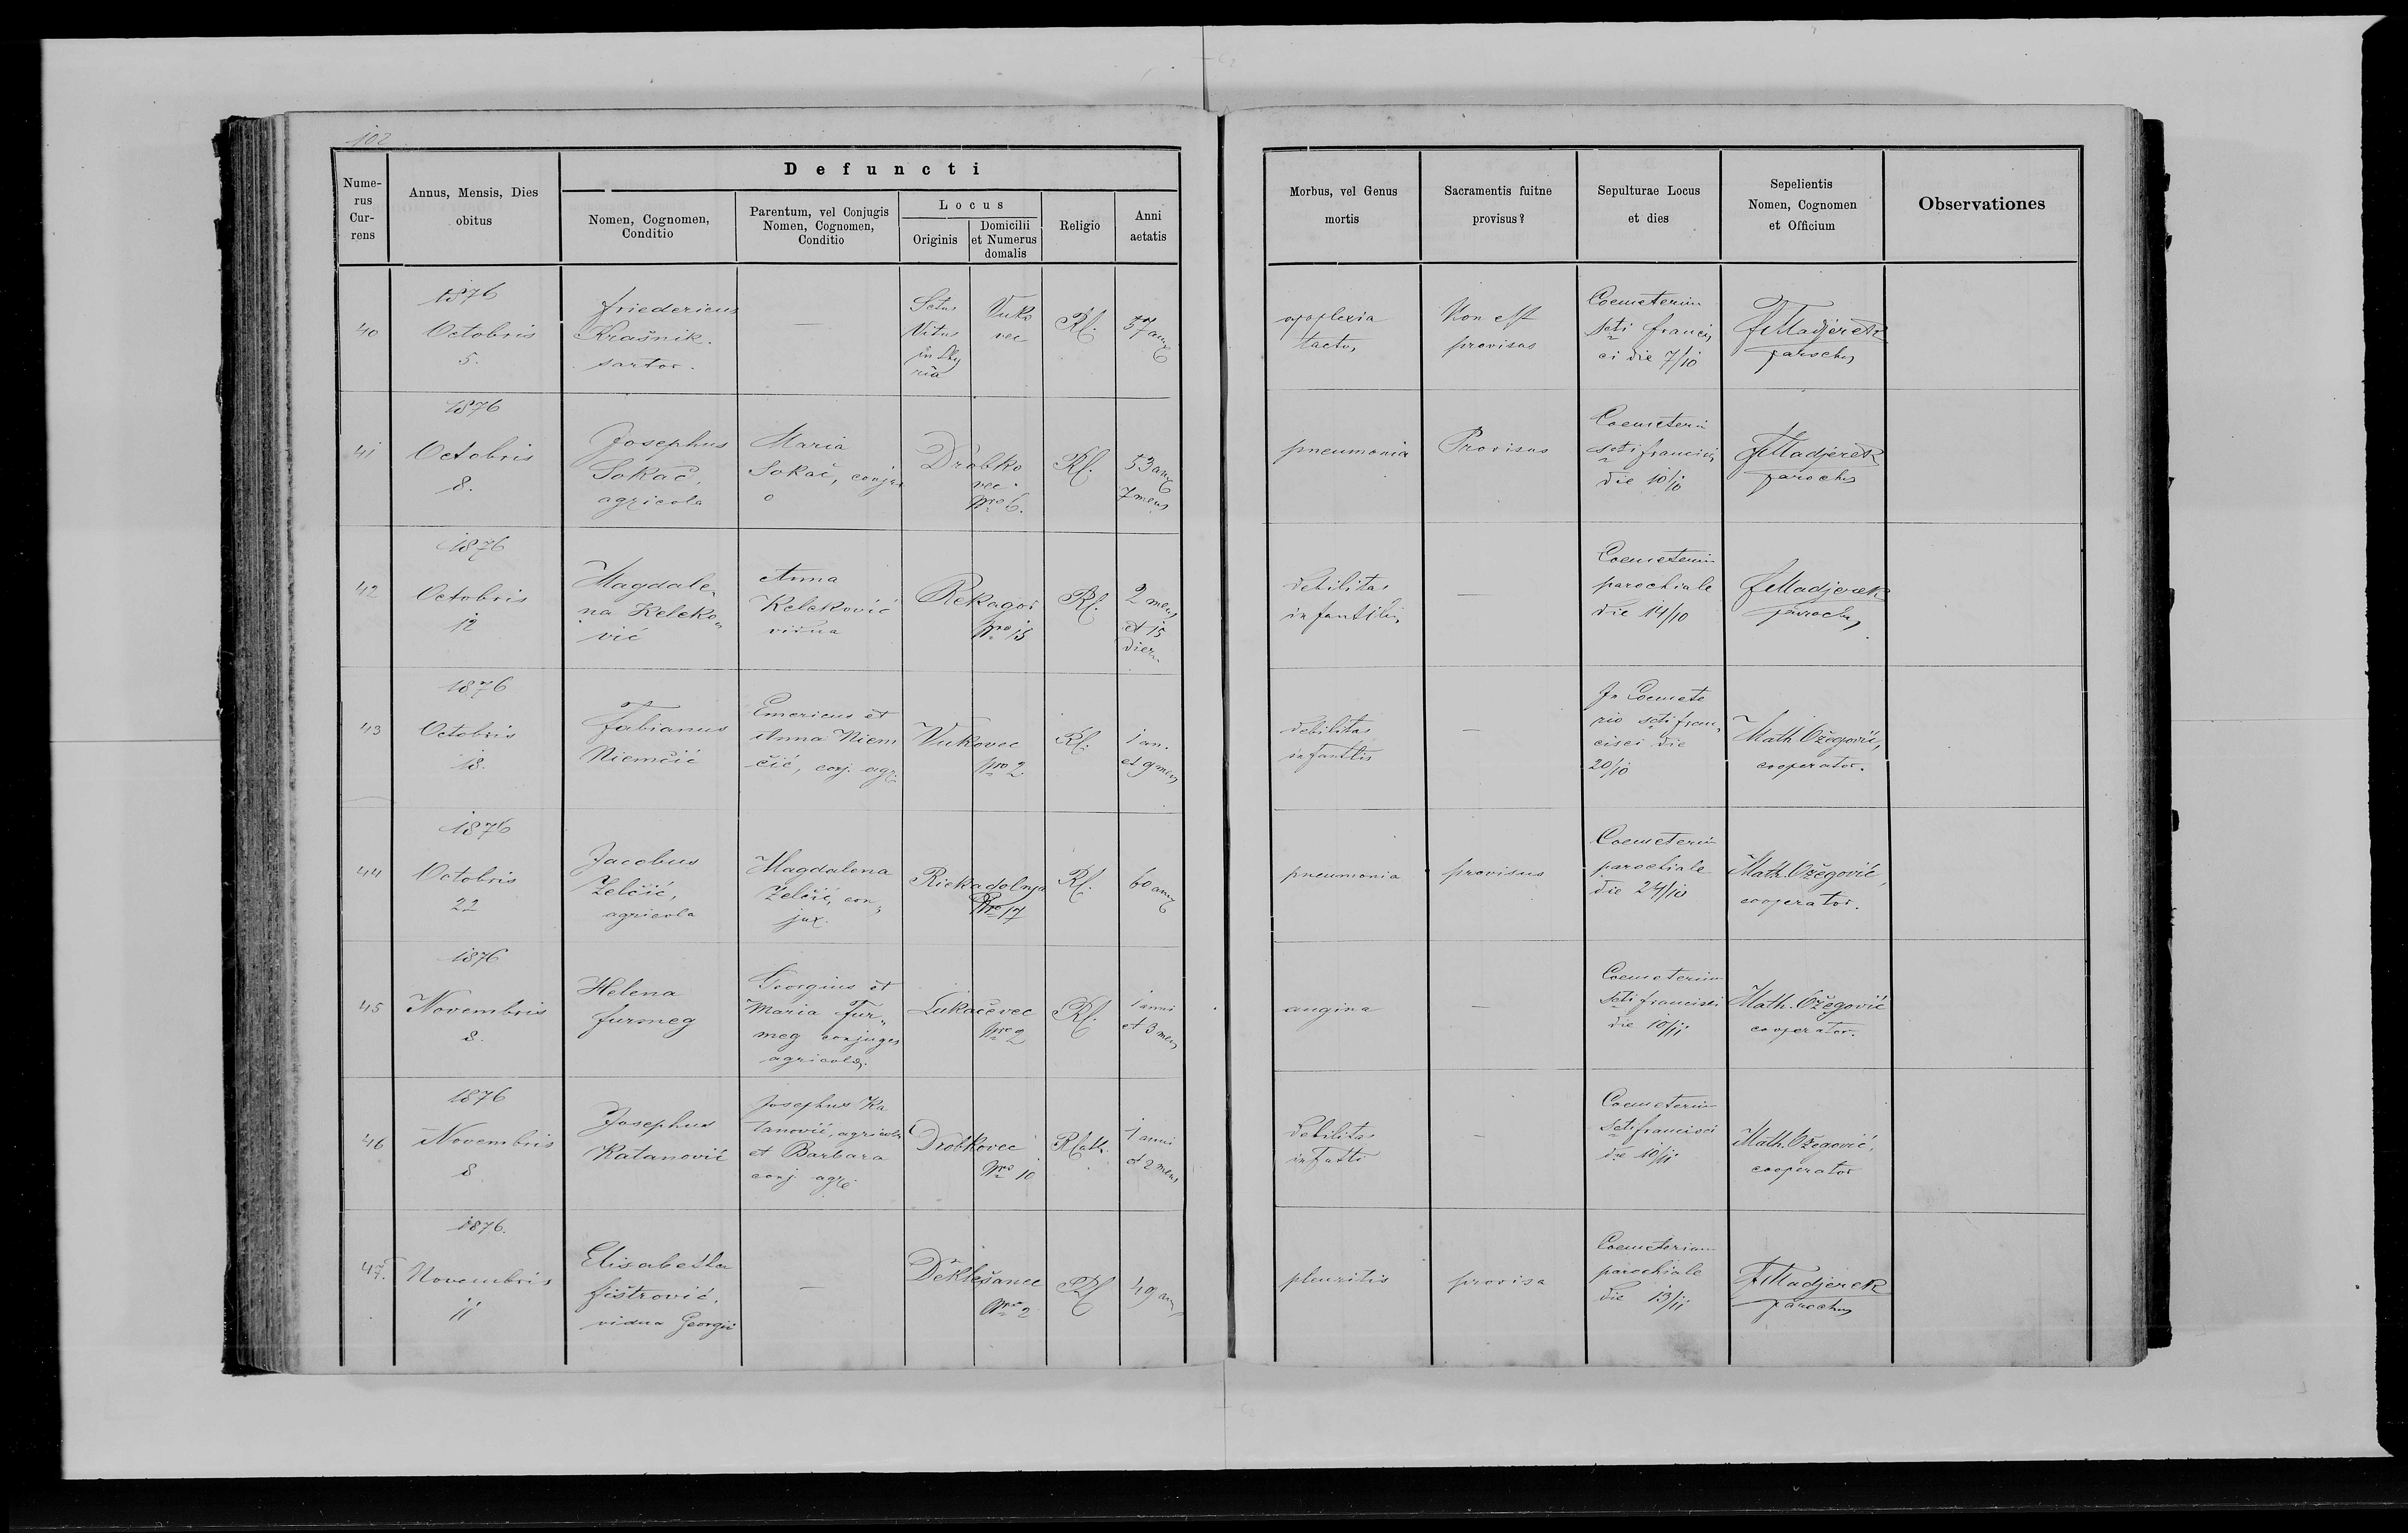 102
Defuncti
Nume-
rus
Cur-
rens
Annus, Mensis, Dies
obitus
Nomen, Cognomen,
Conditio
Parentum, vel Conjugis
Nomen, Cognomen,
Conditio
Locus
Originis
Domicilii
et Numerus
domalis
Religio
Anni
aetatis
Morbus, vel Genus
mortis
Sacramentis fuitne
provisus?
Sepulturae Locus
et dies
Sepelientis
Nomen, Cognomen
et Officium
Observationes
40
1876
Octobris
5.
Friedericus
Krašnik.
sartor.
—
Sctus
Vitus
in Sty
ria
Vuko
vec
RC.
57 an
apoplexia
tactus
Non est
provisus
Coemeterium
Scti Francis
ci die 7/10
FMadjerek
parochus
41
1876
Octobris
8.
Josephus
Sokač,
agricola
Maria
Sokač, conju
Drobko
vec
Nro 6.
RC.
53 an
7 mens
pneumonia
Provisus
Coemeteriu
Scti Francisci
die 10/10
FMadjerek
parochus
42
1876
Octobris
12
Magdale„
na Keleko„
vić
Anna
Keleković
vidua
Rekagor
Nro 15
RC.
2 mens
et 15
dier
debilitas
infantilis
—
Coemeterium
parochiale
die 14/10
FMadjerek
parochus
43
1876
Octobris
18.
Fabianus
Niemčić
Emericus et
Anna Niem
čić, conj. agr
Vukovec
Nro 2
RC.
1 an.
et 9 mens
debilitas
infantlis
—
In Coemete
rio scti Fran„
cisci die
20/10
Math. Ožegović,
cooperator.
44
1876
Octobris
22
Jacobus
Želčić,
agricola
Magdalena
Želčić, con„
jux.
Riekadolnja
Nro 17
RC.
60 an
pneumonia
provisus
Coemeterium
parochiale
die 24/10
Math. Ožegović,
cooperator.
45
1876
Novembris
8.
Helena
Furmeg
Georgius et
Maria Fur„
meg conjuges
agricolae.
Lukačevec
Nro 2
RC.
1 anni
et 3 mens
angina
—
Coemeterium
Scti Francisci
die 10/11
Math. Ožegović
cooperator.
46
1876
Novembris
8
Josephus
Katanović
Josephus Ka
tanović, agricola
et Barbara
conj. agr
Drobkovec
Nro 10
RCath.
1 anni
et 2 mens
debilitas
infatti
—
Coemeterium
Scti Francisci
die 10/11
Math. Ožegović,
cooperator
47.
1876.
Novembris
11
Elisabetha
Fištrović,
vidua Georgii
—
Deklešanec
Nro 2
RC
49 an
pleuritis
provisa
Coemeterium
parochiale
die 13/11
FMadjerek
parochus